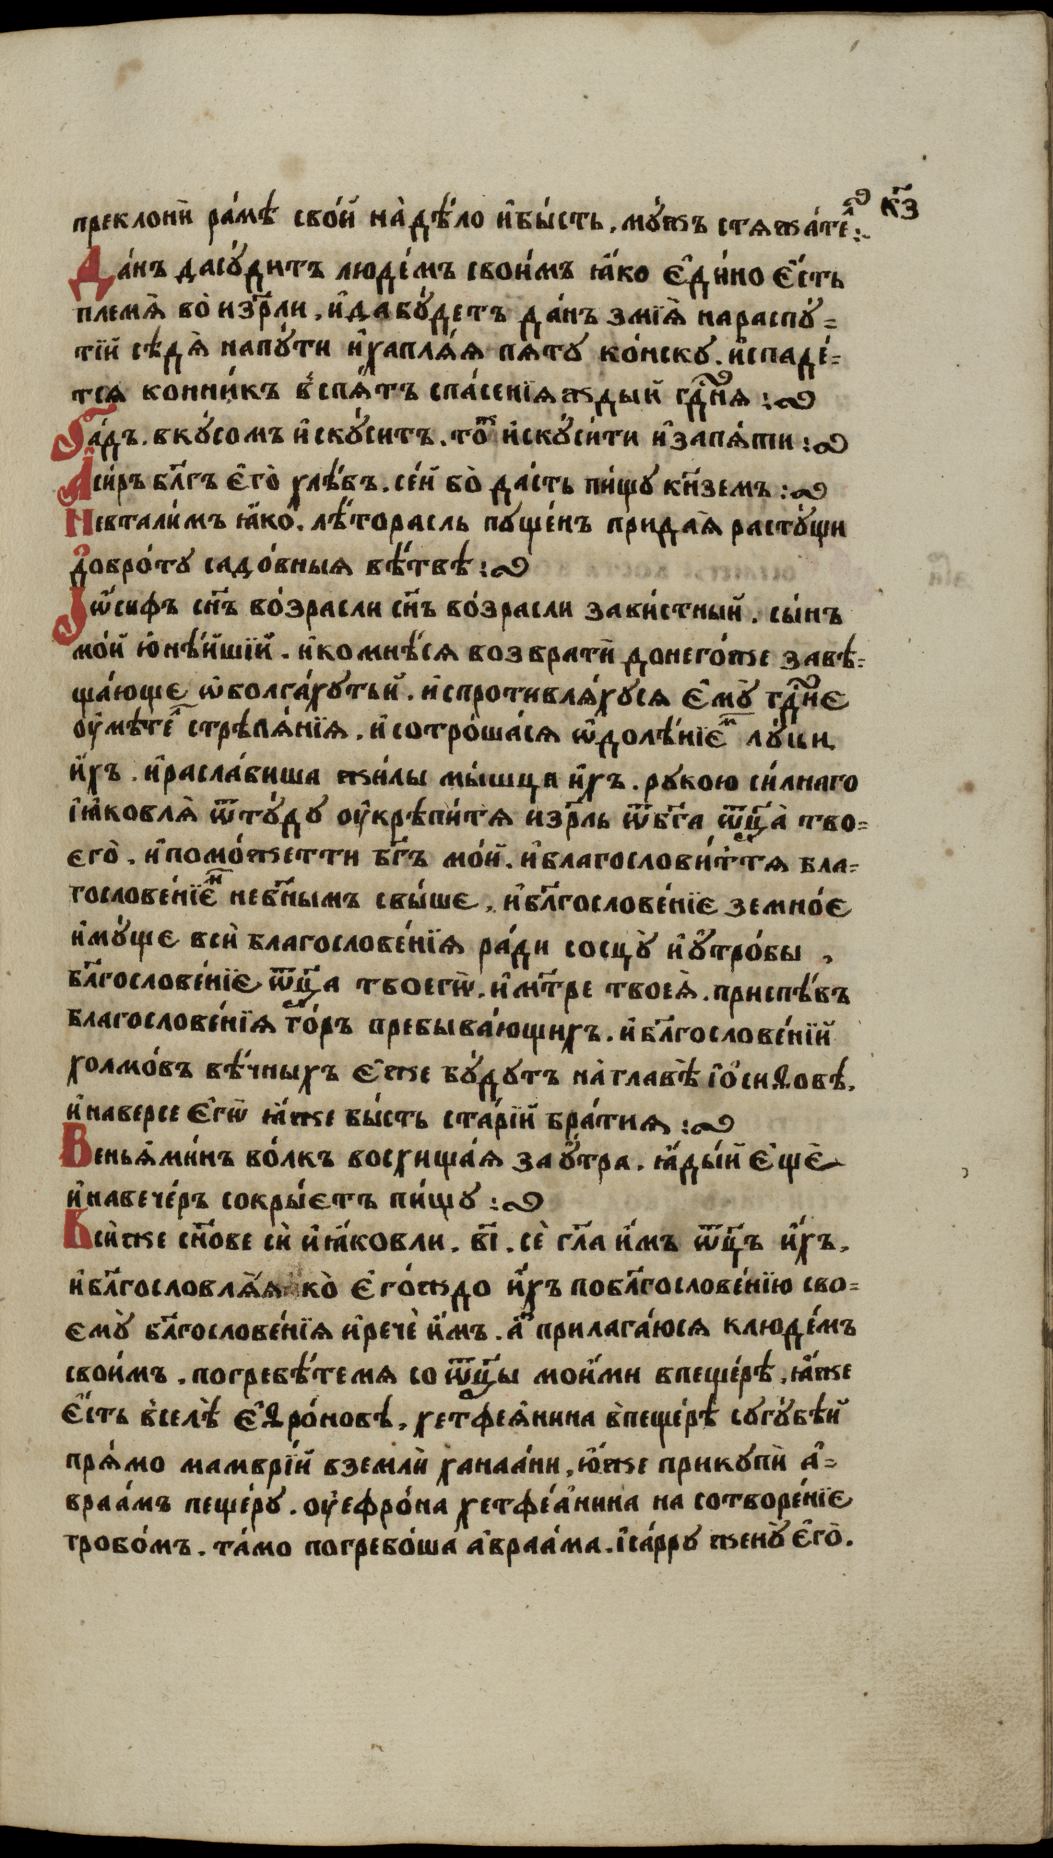 к҃з
преклони́ ра́мѣ сво́й на̀дѣ́ло и҆бы́сть, мꙋ́жъ стѧжа́те́л :~
Да́нъ дасꙋ́дитъ людє́мъ свои́мъ ꙗ҆́ко є҆ди́но є҆́сть
племѧ̀ во̀ из҃рли, и҆дабꙋ́детъ да́нъ змїѧ̀ нараспꙋ́-
тїй сѣдѧ̀ напꙋ́ти и҆хаплѧ́ѧ пѧ́тꙋ ко́нскꙋ. и҆спадє́-
тсѧ конни́къ вспѧ́тъ спасе́нїѧ ждый гд҃нѧ :~
Га́дъ. вкꙋ́сомъ и҆скꙋ́ситъ. то́й и҆скꙋси́ти и҆запѧ́ти :~
А҆си́ръ бл҃гъ є҆го̀ хлѣ́бъ. се́й бо̀ да́сть пи́щꙋ кн҃земъ :~
Невтали́мъ ꙗ҆́ко. лѣ́торасль пꙋще́нъ придаѧ̀ растꙋ́щи
добро́тꙋ садо́вныѧ вѣ́твѣ :~
Іѡ҆́сифъ сн҃ъ во́зрасли сн҃ъ во́зрасли зави́стный. сы́нъ
мо́й ю҆нѣ́йшїй. и҆комнѣ́сѧ возврати́ донего́же завѣ-
ща́юще ѡ҆болга́хꙋтьй. и҆спротивлѧ́хꙋсѧ є҆мꙋ̀ гд҃нє
ᲂу҆мѣте́л стрѣлѧ́нїѧ. и҆сотро́ша́сѧ ѡ҆долѣ́нїє́м лꙋ́цы
и҆́хъ. и҆расла́биша жи́лы мы́шцѧ и҆́хъ. рꙋкою си́лнаго
і҆ꙗ҆ковлѧ̀ ѿтꙋ́дꙋ ᲂу҆крѣпи́тѧ из҃рль ѿбг҃а ѿц҃а̀ тво-
єго̀. и҆помо́жетти бг҃ъ мо́й. и҆благослови́ттѧ бла-
гослове́нїє́м неб҃нымъ свы́ше, и҆бл҃гослове́нїє земно́є
и҆мꙋ́ще всѝ благослове́нїѧ ра́ди сосцꙋ̀ и҆ᲂу҆тро́бы ,
бл҃гослове́нїє ѿц҃а твоегѡ̀. и҆мт҃ре твоеѧ̀. приспѣ́въ
благослове́нїѧ го́ръ пребыва́ющихъ. и҆бл҃гослове́нїй
холмо́въ вѣ́чныхъ є҆́же бꙋ́дꙋтъ на̀главѣ̀ і҆о҆́сиѳовѣ,
и҆наверсе є҆гѡ̀ ꙗ҆́же бы́сть ста́рїй бра́тиѧ :~
Веньѧ҆ми́нъ во́лкъ восхища́ѧ заᲂу҆́тра. ꙗ҆ды́й є҆щѐ
и҆навече́ръ сокры́єтъ пи́щꙋ :~
Всѝже сн҃ове сѝ и҆ꙗ҆ковли. ві҃. сѐ гл҃а и҆́мъ ѿц҃ъ и҆́хъ,
и҆бл҃гословлѧ́ѧ ко̀ є҆го́ждо и҆́хъ побл҃гослове́нїю сво-
ємꙋ̀ бл҃гослове́нїѧ и҆речѐ и҆́мъ. а҆́з прилага́юсѧ клюде́мъ
свои́мъ. погребѣ́темѧ со ѿц҃ы мои́ми впеще́рѣ, ꙗ҆́же
є҆́сть вселѣ̀ є҆ѳро́новѣ, хетфеѧ҆́нина впеще́рѣ сꙋгꙋ́бѣй
прѧ́мо мамврїй вземлѝ ханаа́ни, ю҆́же прикꙋпѝ а҆-
враа́мъ пеще́рꙋ. ᲂу҆єфро́на хетфеа҆́нина на сотворе́нїє
гробо́мъ. та́мо погребо́ша а҆враа́ма. і҆са́ррꙋ женꙋ̀ є҆го̀.